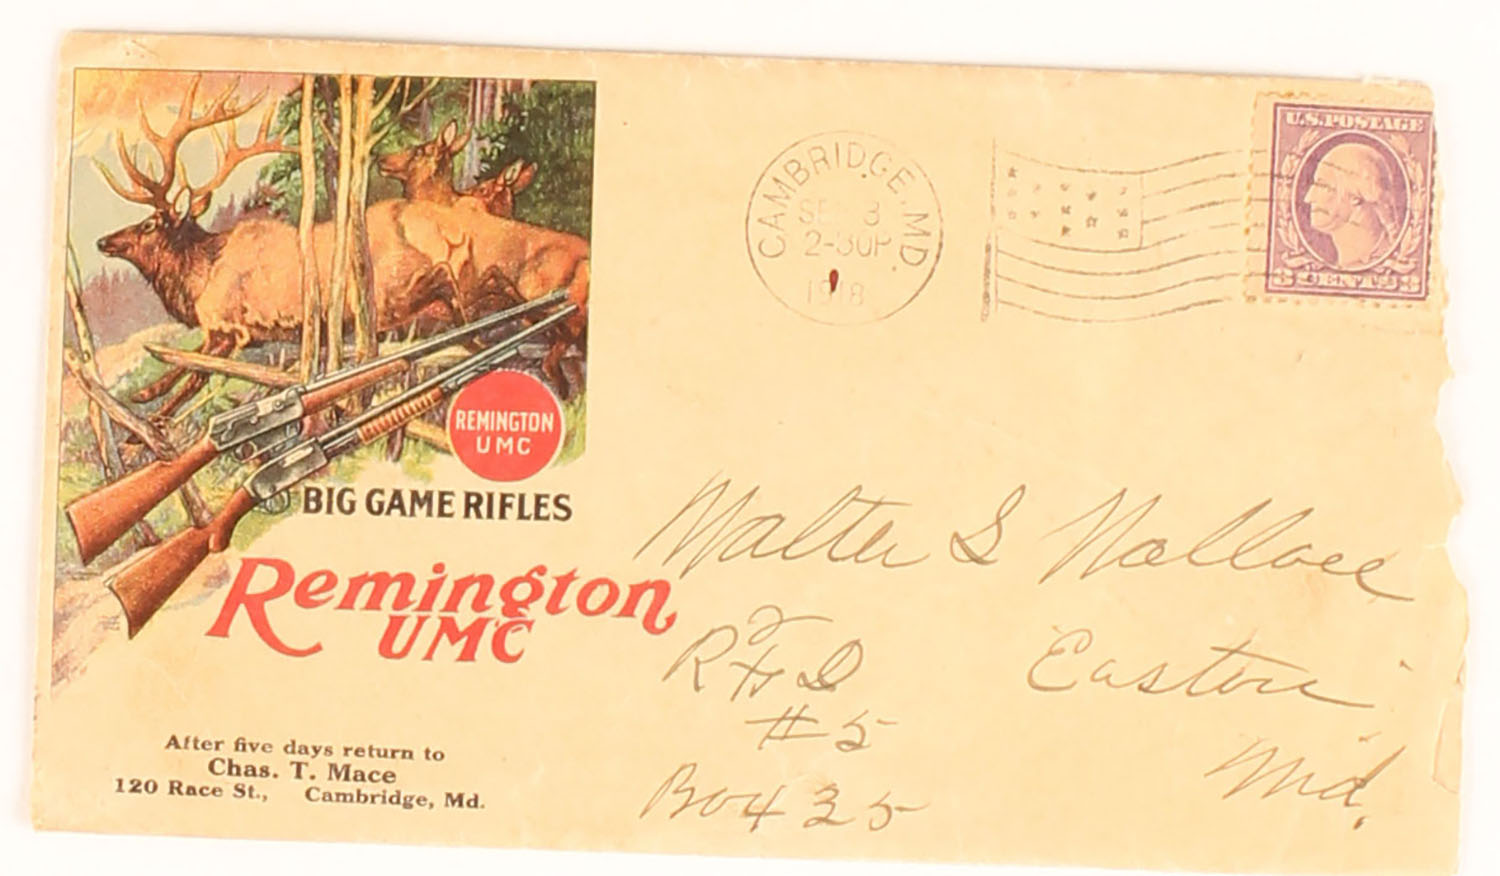 U.S. POSTAGE
3 CENTS 3
CAMBRIDGE, MD.
SEP 3
2-30P
1918
REMINGTON
UMC
BIG GAME RIFLES
Remington
UMC
Walter S Wallace
R F D Easton
#5 Md.
Box 35
After five days return to
Chas. T. Mace
120 Race St., Cambridge, Md.